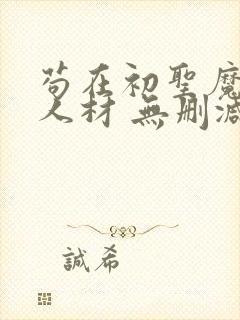 苟在初聖魔
人材 無刪減
誠希